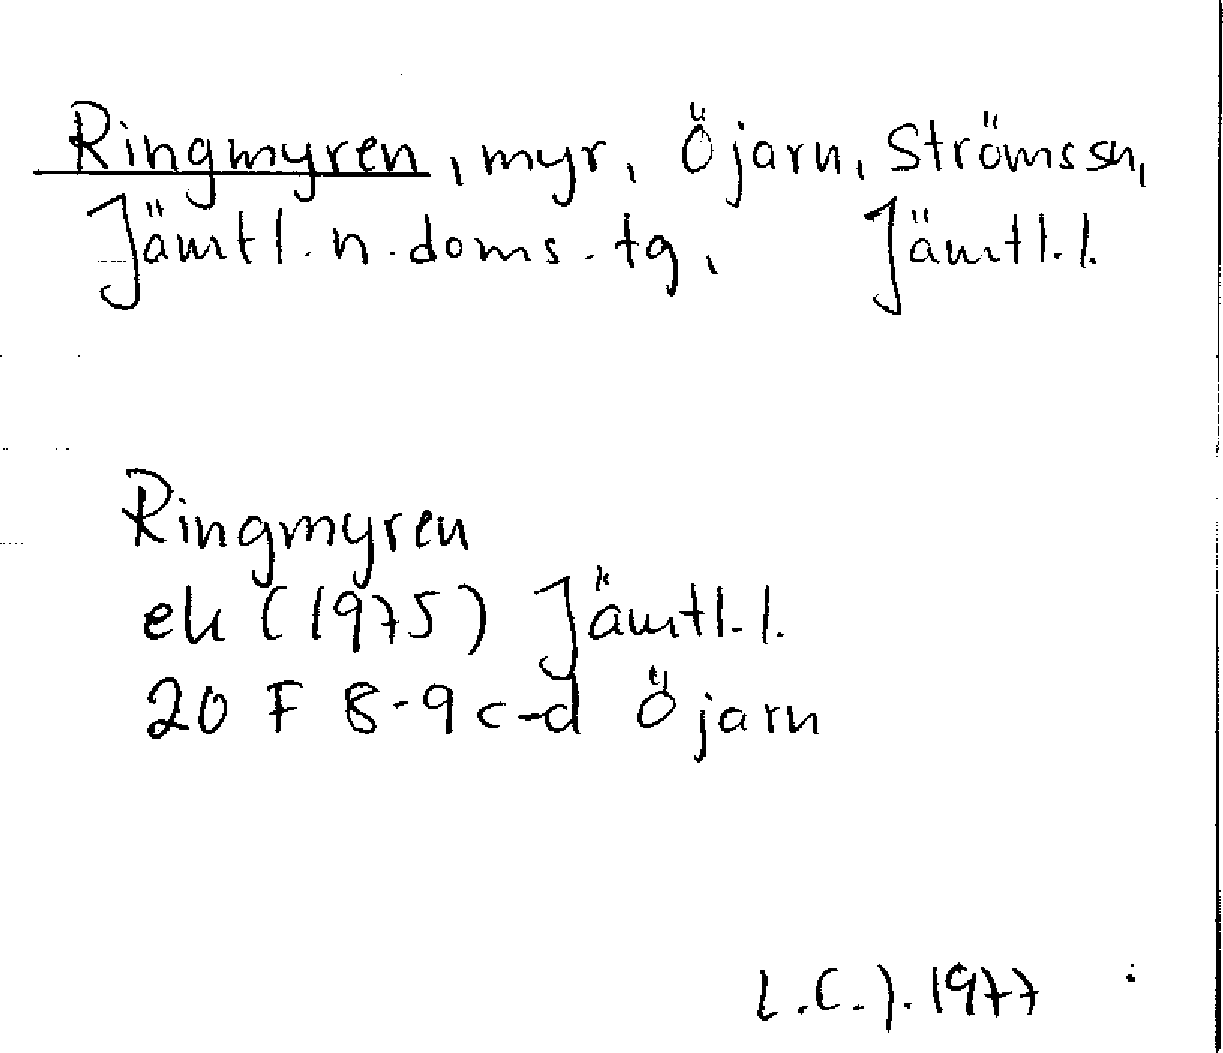 Ringmyren, myr, Öjarn, Ströms sn,
Jämtl. n. doms. tg, Jämtl. l.
Ringmyren
ek (1975) Jämtl. l.
20 F 8-9 c-d Öjarn
L.C.J. 1977